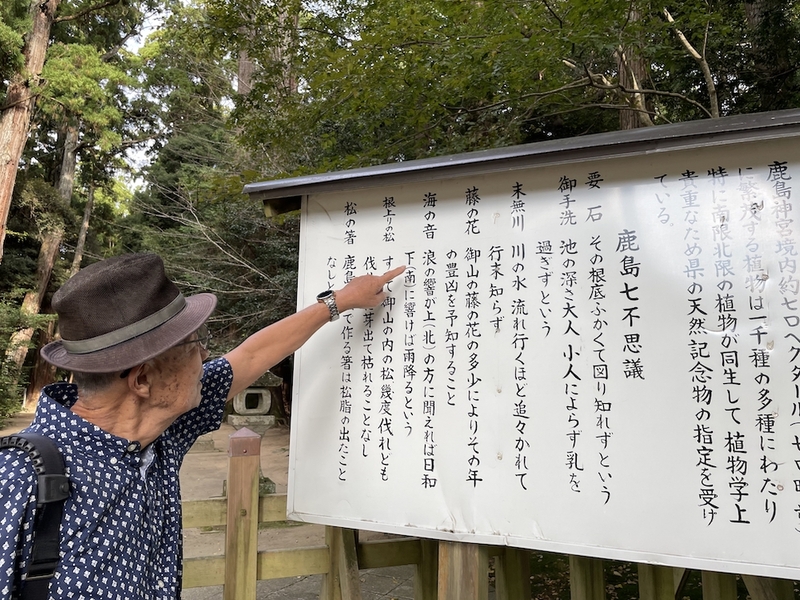 鹿島神宮境内約七〇ヘクタール(
に繁茂する植物は一千種の多種にわたり
特に南限北限の植物が同生して植物学上
貴重なため県の天然記念物の指定を受け
ている。
鹿島七不思議
要石 その根底ふかくて図り知れずという
御手洗 池の深さ大人小人によらず乳を
過ぎずという
末無川 川の水流れ行くほど追々かれて
行末知らず
藤の花 御山の藤の花の多少によりその年
の豊凶を予知すること
海の音 浪の響が上(北)の方に聞えれば日和
下(南)に響けば雨降るという
根上りの松 すべて御山の内の松幾度伐れども
伐 芽出て枯れることなし
松の箸 鹿島 で作る箸は松脂の出たこと
なし